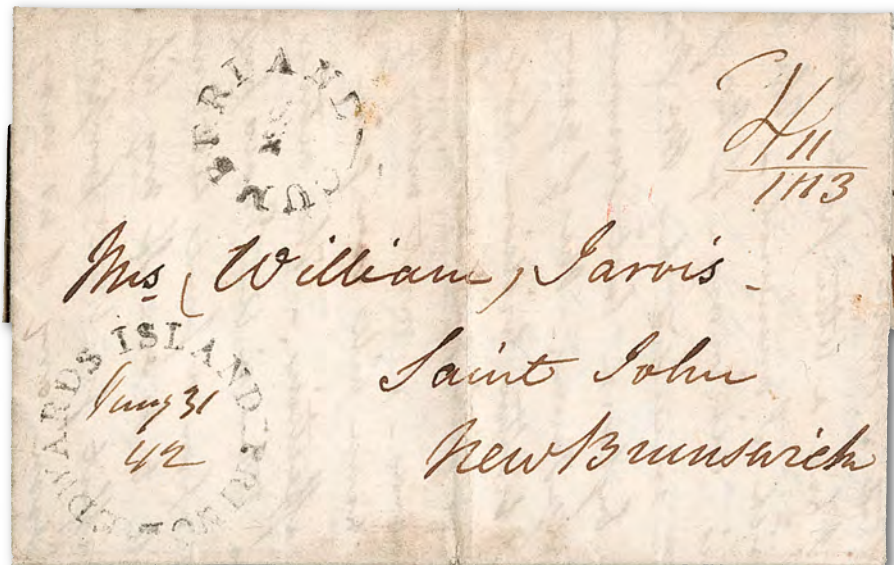 CUMBERLAND
H11
1N3
Mrs (William) Jarvis -
Saint John
New Brunswick
PRINCE EDWARDS ISLAND
Jany 31
42